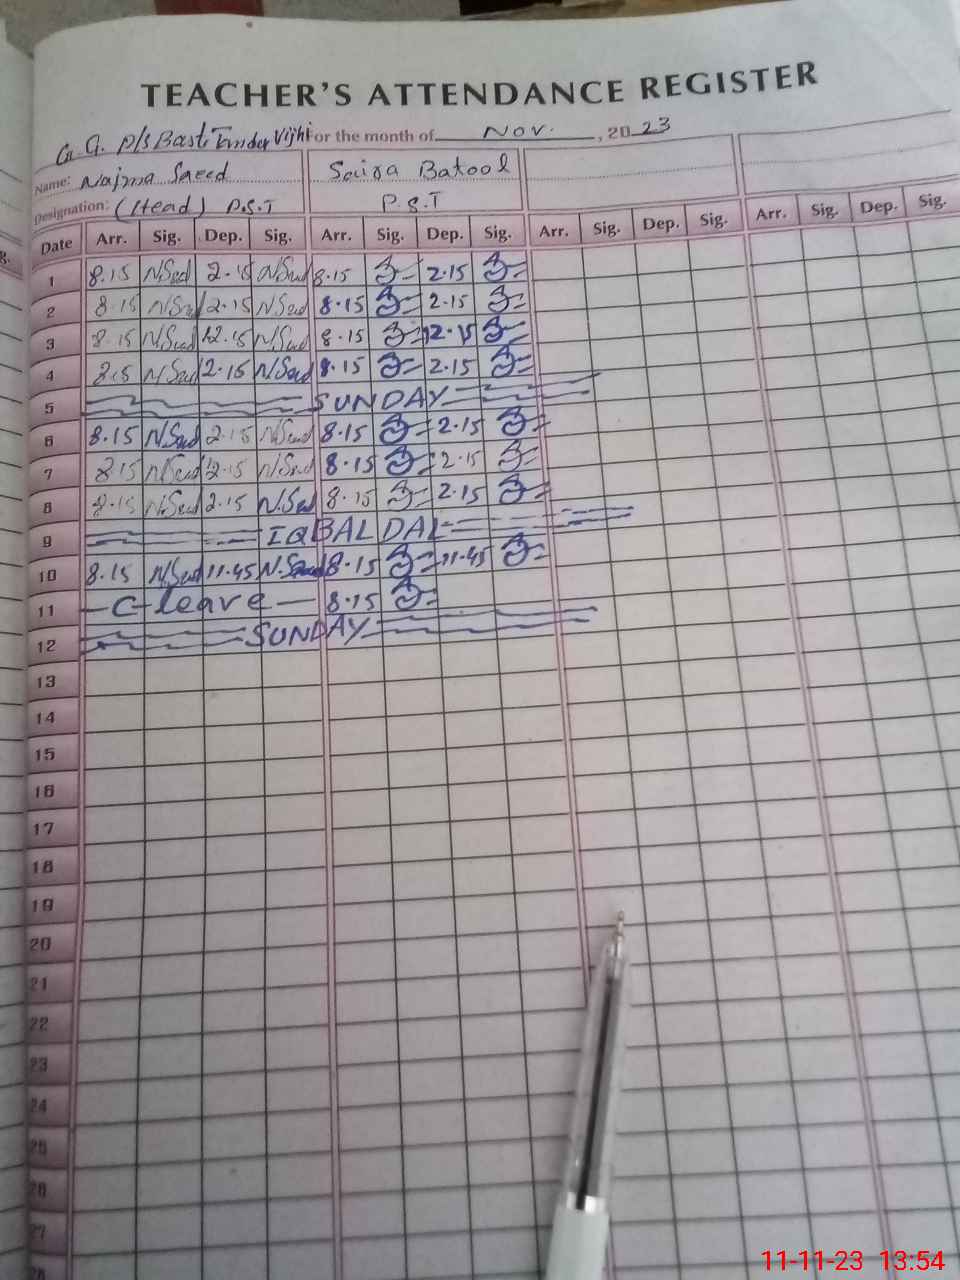 TEACHER'S ATTENDANCE REGISTER
G. G. P/S Basti Tinder Vijhi For the month of Nov. , 2023
Name: Najma Saeed Saira Batool
Designation: (Head) P.S.T P.S.T
Date Arr. Sig. Dep. Sig. Arr. Sig. Dep. Sig. Arr. Sig. Dep. Sig. Arr. Sig. Dep. Sig.
1 8.15 N.Saed 2.15 N.Saed 8.15 2.15
2 8.15 N.Saed 2.15 N.Saed 8.15 2.15
3 8.15 N.Saed 12.15 N.Saed 8.15 12.15
4 8.15 N.Saed 2.15 N.Saed 8.15 2.15
5 SUNDAY
6 8.15 N.Saed 2.15 N.Saed 8.15 2.15
7 8.15 N.Saed 2.15 N.Saed 8.15 2.15
8 8.15 N.Saed 2.15 N.Saed 8.15 2.15
9 IQBAL DAL
10 8.15 N.Saed 11.45 N.Saed 8.15 11.45
11 C-leave 8.15
12 SUNDAY
13
14
15
16
17
18
19
20
21
22
23
24
25
26
27
28
11-11-23 13:54